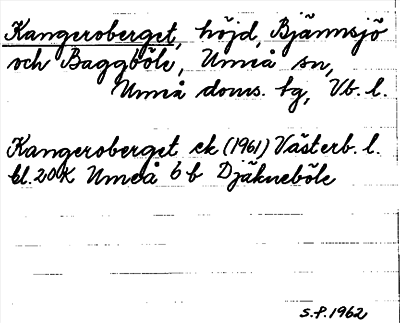 Kangeroberget, höjd, Bjännsjö
och Baggböle, Umeå sn,
Umeå doms. tg, Vb. l.
Kangeroberget ek (1961) Västerb. l.
bl. 20K Umeå 6 b Djäkneböle
S.P. 1962